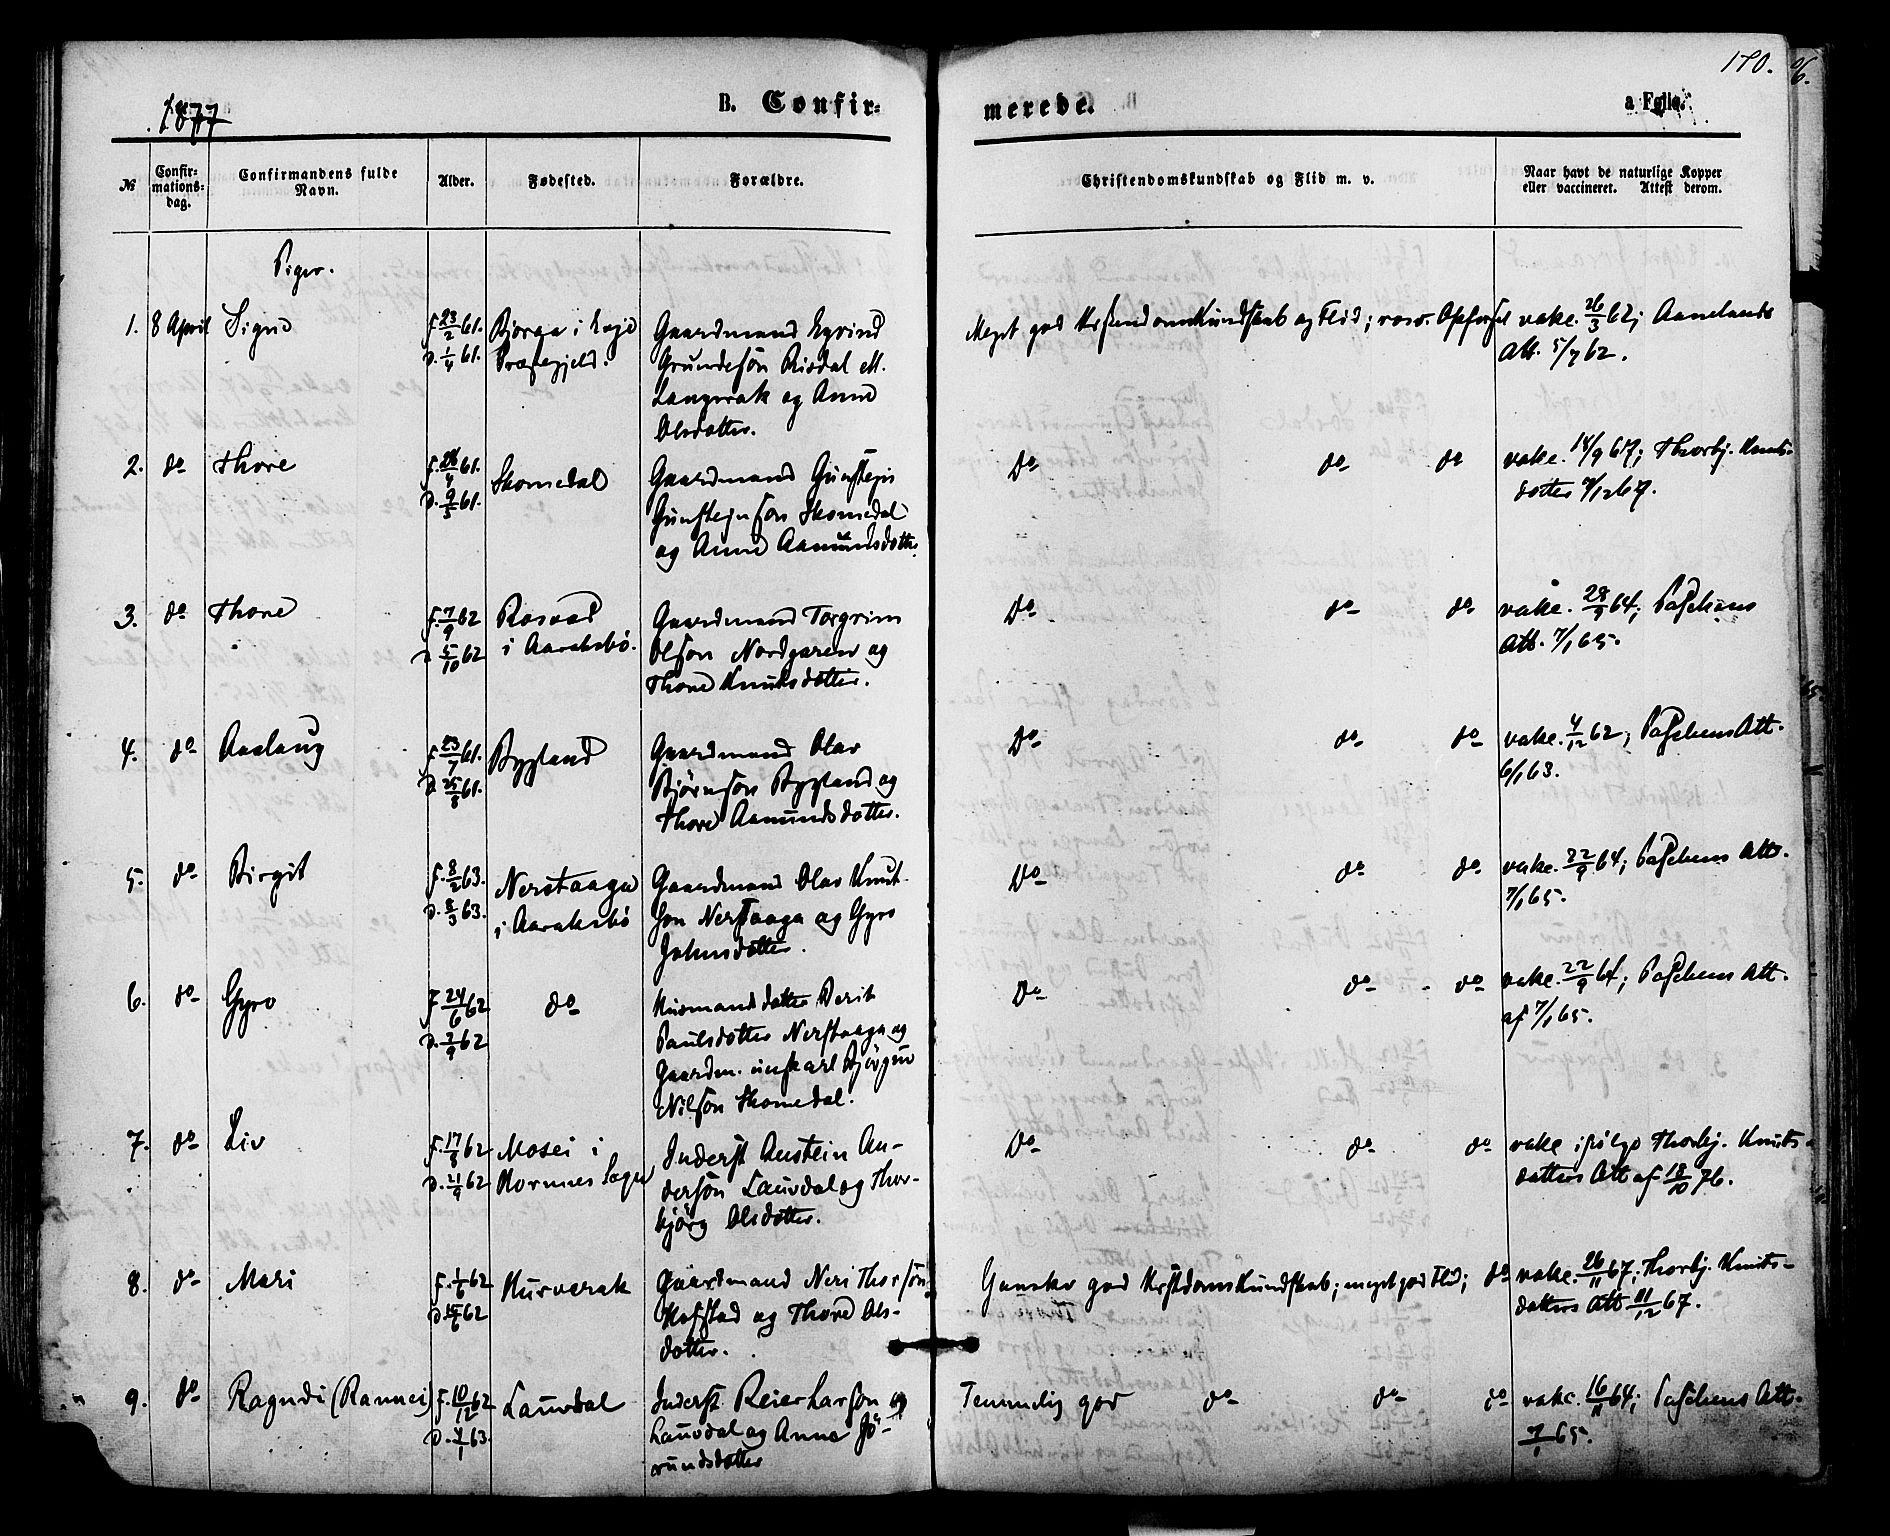 170.
1877
B. Confir=
merede.
a Folio.
№
Confir-
mations-
dag.
Confirmandens fulde
Navn.
Alder.
Fødested.
Forældre.
Christendomskundskab og Flid m. v.
Naar havt de naturlige Kopper
eller vaccineret. Attest derom.
Piger.
1. 8 April Signe
f. 23/2 61.
d. 1/4 61.
Bjorga i
Præstegjeld.
Gaardmand Eyvind
Grundesøn Risdal ell.
Langerak og Anne
Olsdotter.
Meget god Krstendomskundskab og Flid; rosv. Opførsel
vakc. 26/3 62; Aanelands
Att. 5/7 62.
2. do Thore
f. 26/4 61.
d. 9/5 61.
Skomedal
Gaardmand Gunstejn
Gunstejnsøn Skomedal
og Anne Aamundsdotter.
Do do do
vakc. 14/9 67; Thorbj. Knuts-
dotter 67.
3. do Thone
f. 7/9 62
d. 5/10 62
Rosvad
i Aaraksbø.
Gaardmand Torgrim
Olson Nordgaren og
Thone Knutsdotter.
Do do do
vakc. 28/9 64; Paschens
Att. 7/1 65.
4. do Aaslaug
f. 23/7 61.
d. 25/8 61.
Bygland
Gaardmand Olav
Bjørnsøn Bygland og
Thore Aamundsdotter.
Do do do
vakc. 4/12 62; Paschens Att.
6/1 63.
5. do Birgit
f. 8/2 63.
d. 8/3 63.
Nerstaaga
i Aaraksbø
Gaardmand Olav Knut-
son Nerstaaga og Gyro
Johnsdotter.
Do do do
vakc. 22/9 64; Paschens Att.
7/1 65.
6. do Gyro
f. 24/6 62
d. 7/9 62
do
Husmandsdotter Berit
Paulsdotter Nerstaaga og
Gaardm. ungkarl Bjørguv
Nilson Skomedal.
Do do do
vakc. 22/9 64; Paschens Att.
af 7/1 65.
7. do Liv
f. 17/8 62
d. 21/9 62
Mosei i
Hornnes Sogn
Inderst Austein An-
dersøn Lauvdal og Thor-
bjørg Olsdotter.
Do do do
vakc ifølge Thorbj. Knuts-
dotters Att af 18/10 76.
8. do Mari
f. 1/6 62
d. 15/6 62
Hurverak
Gaardmand Neri Thorsøn
Hofstad og Thore Ols-
dotter.
Ganske god Krstdomskundskab; meget god Flid; do
vakc. 26/11 67; Thorbj. Knuts-
dotters Att 11/12 67.
9. do Ragndi (Rannei)
f. 10/12 62
d. 4/1 63.
Lauvdal
Inderst Reier Larson
Lauvdal og Anne Jö-
rundsdotter
Temmelig god do do do
vakc. 16/11 64; Paschens Att.
7/1 65.